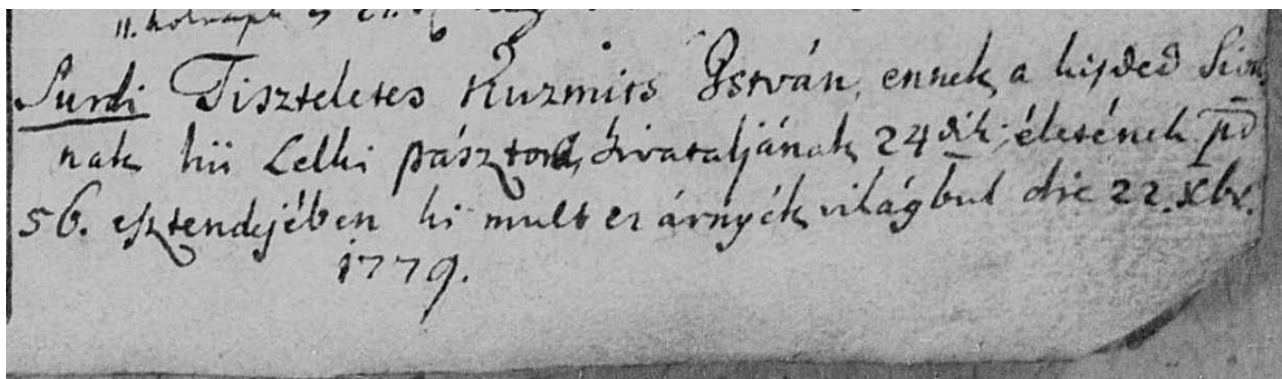 11. holnap
Surdi Tiszteletes Kuzmits István, ennek a kisded Sion
nak hü Lelki pásztora, hivataljának 24dik; életének pd
56. esztendejében ki mult ez árnyék világbul die 22. Xbr.
1779.